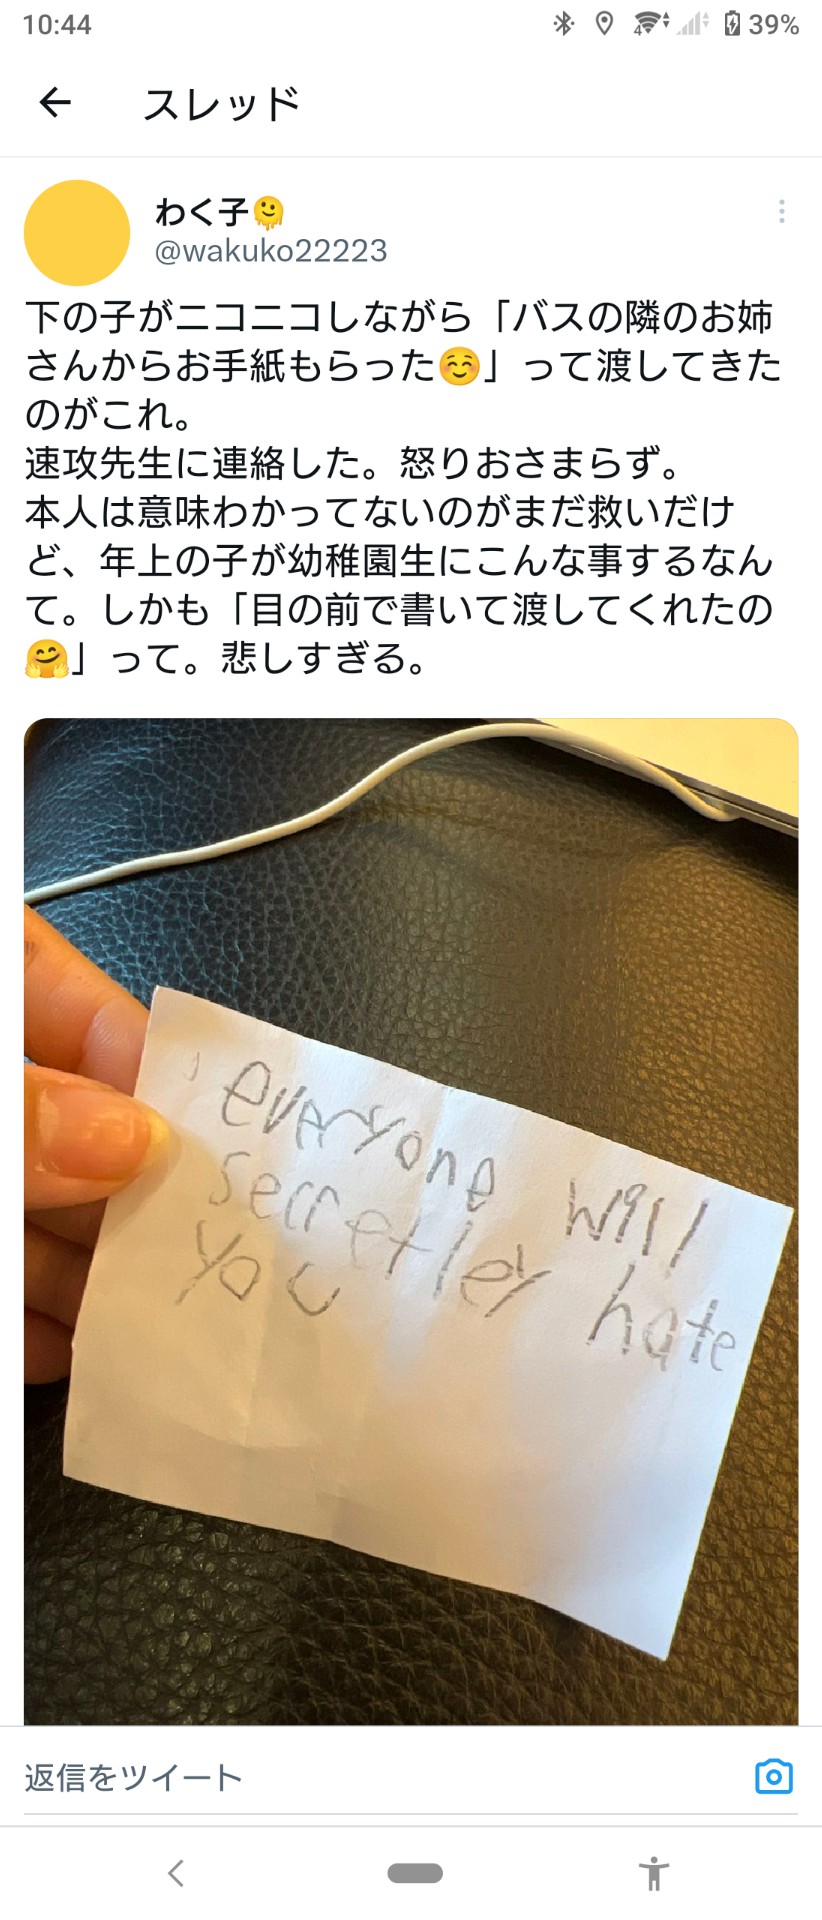 10:44
39%
スレッド
わく子🫠
@wakuko22223
下の子がニコニコしながら「バスの隣のお姉
さんからお手紙もらった☺️」って渡してきた
のがこれ。
速攻先生に連絡した。怒りおさまらず。
本人は意味わかってないのがまだ救いだけ
ど、年上の子が幼稚園生にこんな事するなん
て。しかも「目の前で書いて渡してくれたの
🤗」って。悲しすぎる。
everyone will
secretley hate
you
返信をツイート